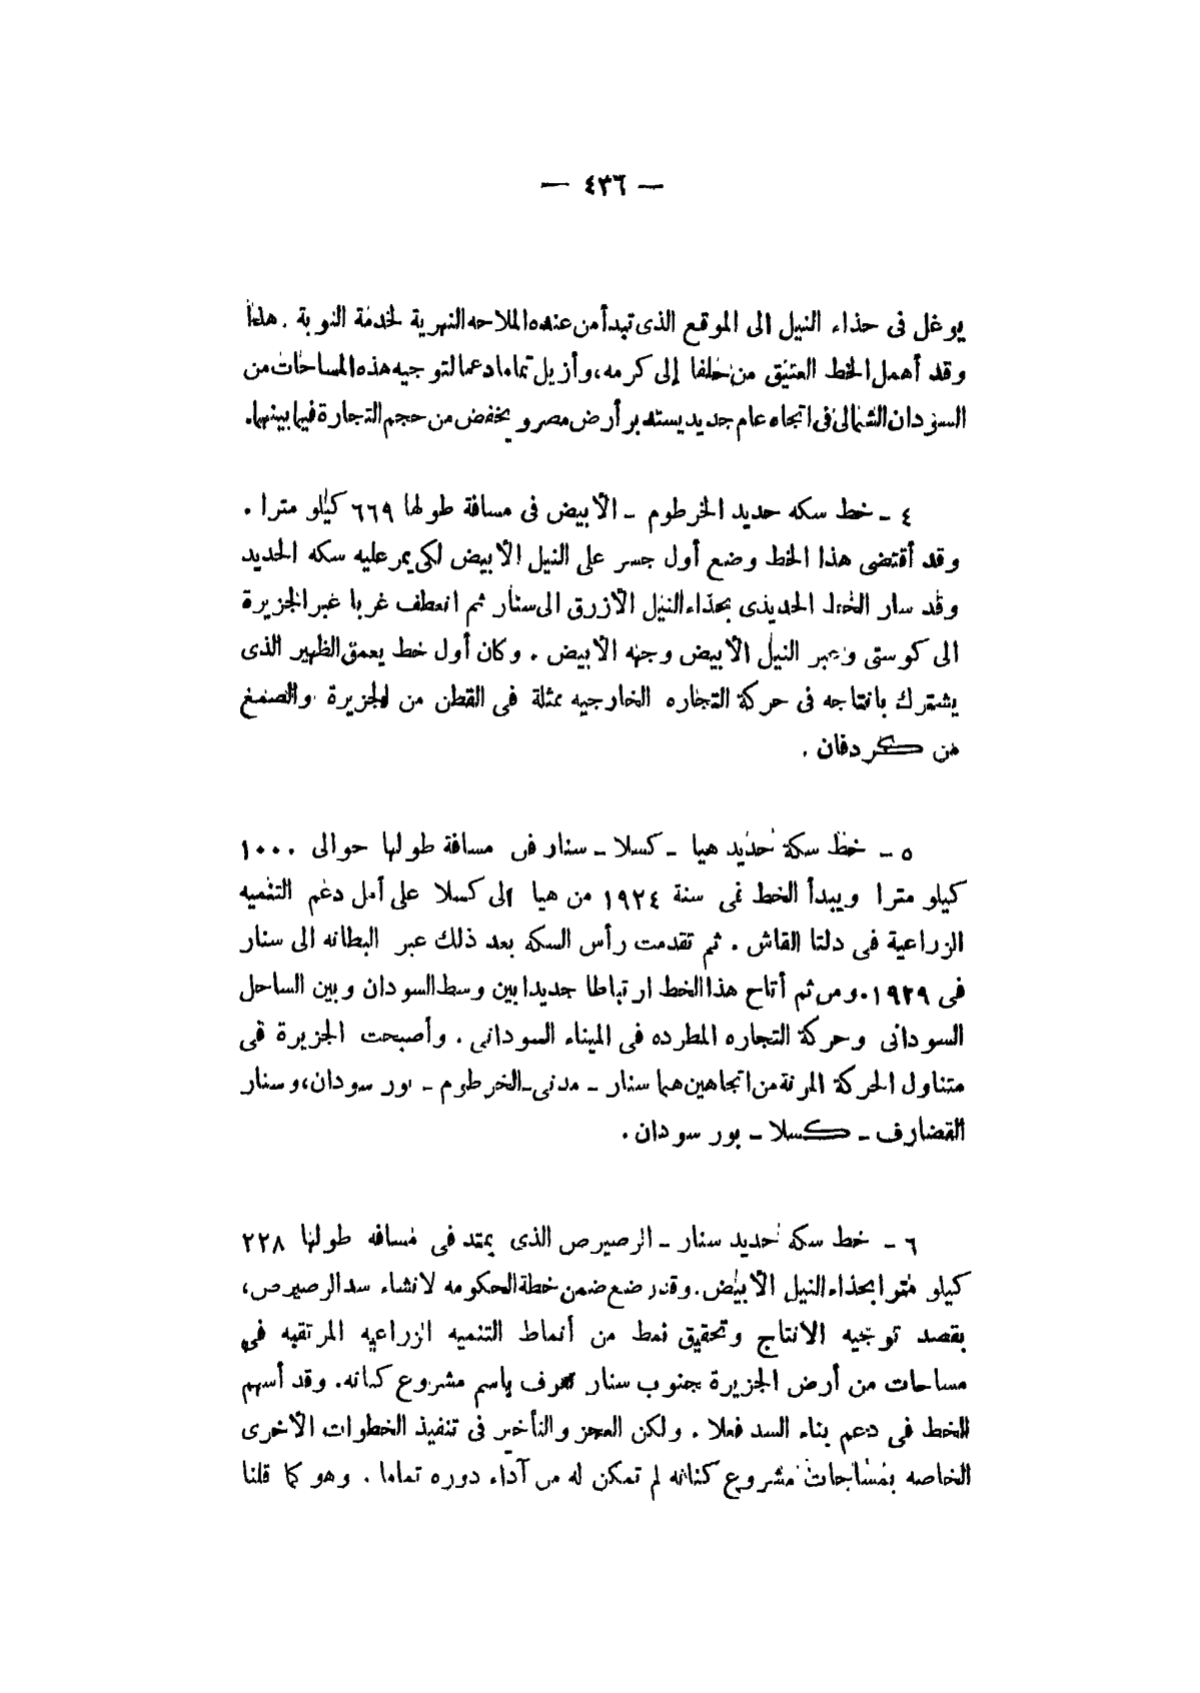 — ٤٣٦ —
يوغل فى حذاء النيل الى الموقع الذى تبدأ من عنده الملاحه النهرية لخدمة النوبة . هذا
وقد أهمل الخط العتيق من حلفا إلى كرمه، وأزيل تماما دعما لتوجيه هذه المساحات من
السودان الشمالى فى اتجاه عام جديد يستدبر أرض مصر ويخفض من حجم التجارة فيما بينهما.
٤ ـ خط سكه حديد الخرطوم ـ الأبيض فى مسافة طولها ٦٦٩ كيلو مترا .
وقد أقتضى هذا الخط وضع أول جسر على النيل الأبيض لكى يمر عليه سكه الحديد
وقد سار الخط الحديدى بحذاء النيل الأزرق الى سنار ثم انعطف غربا عبر الجزيرة
الى كوستى وعبر النيل الأبيض وجهه الأبيض . وكان أول خط يعمق الظهير الذى
يشترك بانتاجه فى حركة التجاره الخارجيه ممثلة فى القطن من الجزيرة والصمغ
من كردفان .
٥ ـ خط سكة حديد هيا ـ كسلا ـ سنار فى مسافة طولها حوالى ١٠٠٠
كيلو مترا ويبدأ الخط فى سنة ١٩٢٤ من هيا الى كسلا على أمل دعم التنميه
الزراعية فى دلتا القاش . ثم تقدمت رأس السكه بعد ذلك عبر البطانه الى سنار
فى ١٩٢٩. ومن ثم أتاح هذا الخط ارتباطا جديدا بين وسط السودان وبين الساحل
السودانى وحركة التجاره المطرده فى الميناء السودانى . وأصبحت الجزيرة فى
متناول الحركة المرنة من اتجاهين هما سنار ـ مدنى ـ الخرطوم ـ بور سودان، وسنار
القضارف ـ كسلا ـ بور سودان .
٦ ـ خط سكه حديد سنار ـ الرصيرص الذى يمتد فى مسافه طولها ٢٢٨
كيلو مترا بحذاء النيل الأبيض. وقد وضع ضمن خطة الحكومه لانشاء سد الرصيرص،
بقصد توجيه الانتاج وتحقيق نمط من أنماط التنميه الزراعيه المرتقبه فى
مساحات من أرض الجزيرة جنوب سنار تعرف باسم مشروع كنانه. وقد أسهم
الخط فى دعم بناء السد فعلا . ولكن العجز والتأخير فى تنفيذ الخطوات الأخرى
الخاصه بمساحات مشروع كنانه لم تمكن له من آداء دوره تماما . وهو كما قلنا